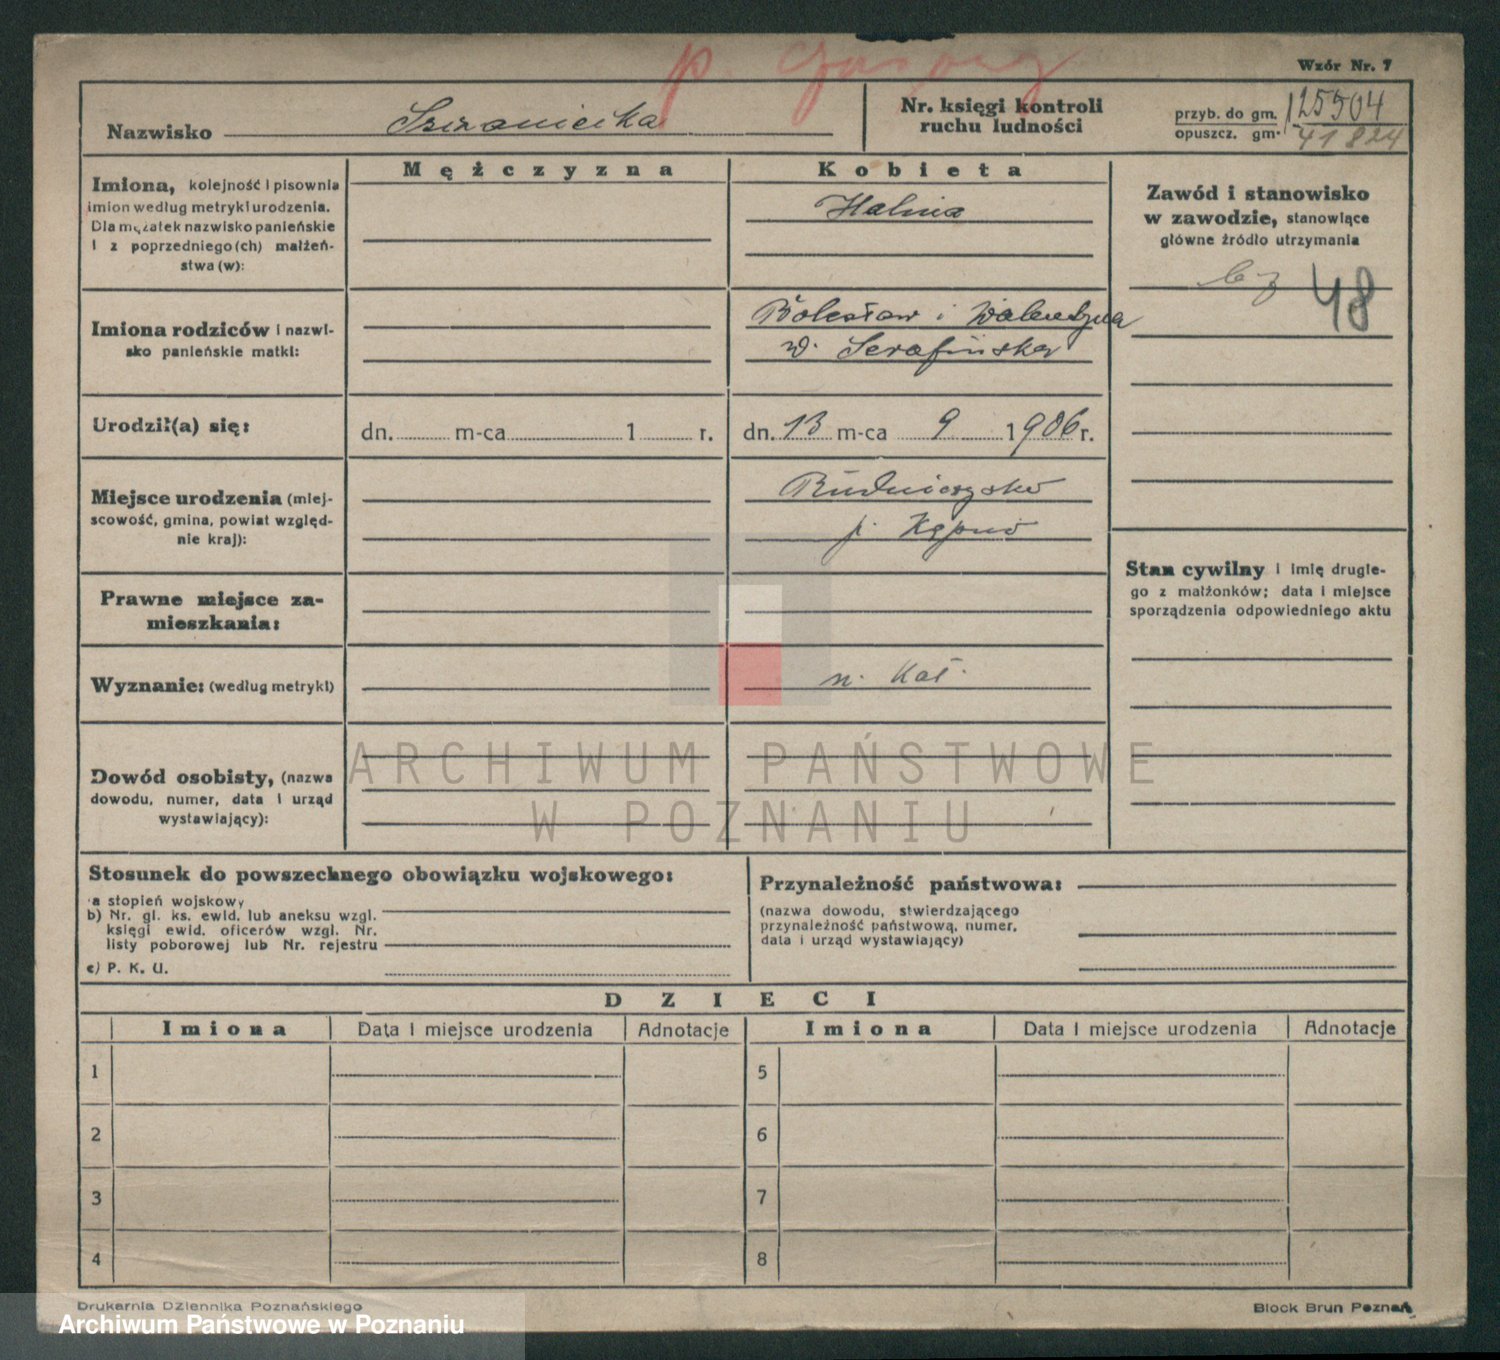 Wzór Nr. 7
p.
Nazwisko Szczaniecka
Nr. księgi kontroli
ruchu ludności
przyb. do gm. 125504
opuszcz. gm. 41824
Mężczyzna
Kobieta
Imiona, kolejność i pisownia
imion według metryki urodzenia.
Dla mężatek nazwisko panieńskie
i z poprzedniego(ch) małżeń-
stwa (w):
Halina
Zawód i stanowisko
w zawodzie, stanowiące
główne źródło utrzymania
bz 48
Imiona rodziców i nazwi-
sko panieńskie matki:
Bolesław i Walentyna
Serafińska
Urodził(a) się:
dn. m-ca 1 r.
dn. 13 m-ca 9 1906 r.
Miejsce urodzenia (miej-
scowość, gmina, powiat względ-
nie kraj):
Rudniczysko
p. Kępno
Stan cywilny i imię drugie-
go z małżonków; data i miejsce
sporządzenia odpowiedniego aktu
Prawne miejsce za-
mieszkania:
Wyznanie: (według metryki)
kat.
Dowód osobisty, (nazwa
dowodu, numer, data i urząd
wystawiający):
ARCHIWUM PAŃSTWOWE
W POZNANIU
Stosunek do powszechnego obowiązku wojskowego:
a stopień wojskowy
b) Nr. gl. ks. ewid. lub aneksu wzgl.
księgi ewid. oficerów wzgl. Nr.
listy poborowej lub Nr. rejestru
c) P. K. U.
Przynależność państwowa:
(nazwa dowodu, stwierdzającego
przynależność państwową, numer,
data i urząd wystawiający)
DZIECI
Imiona Data i miejsce urodzenia Adnotacje Imiona Data i miejsce urodzenia Adnotacje
1 5
2 6
3 7
4 8
Drukarnia Dziennika Poznańskiego
Block Brun Poznań
Archiwum Państwowe w Poznaniu